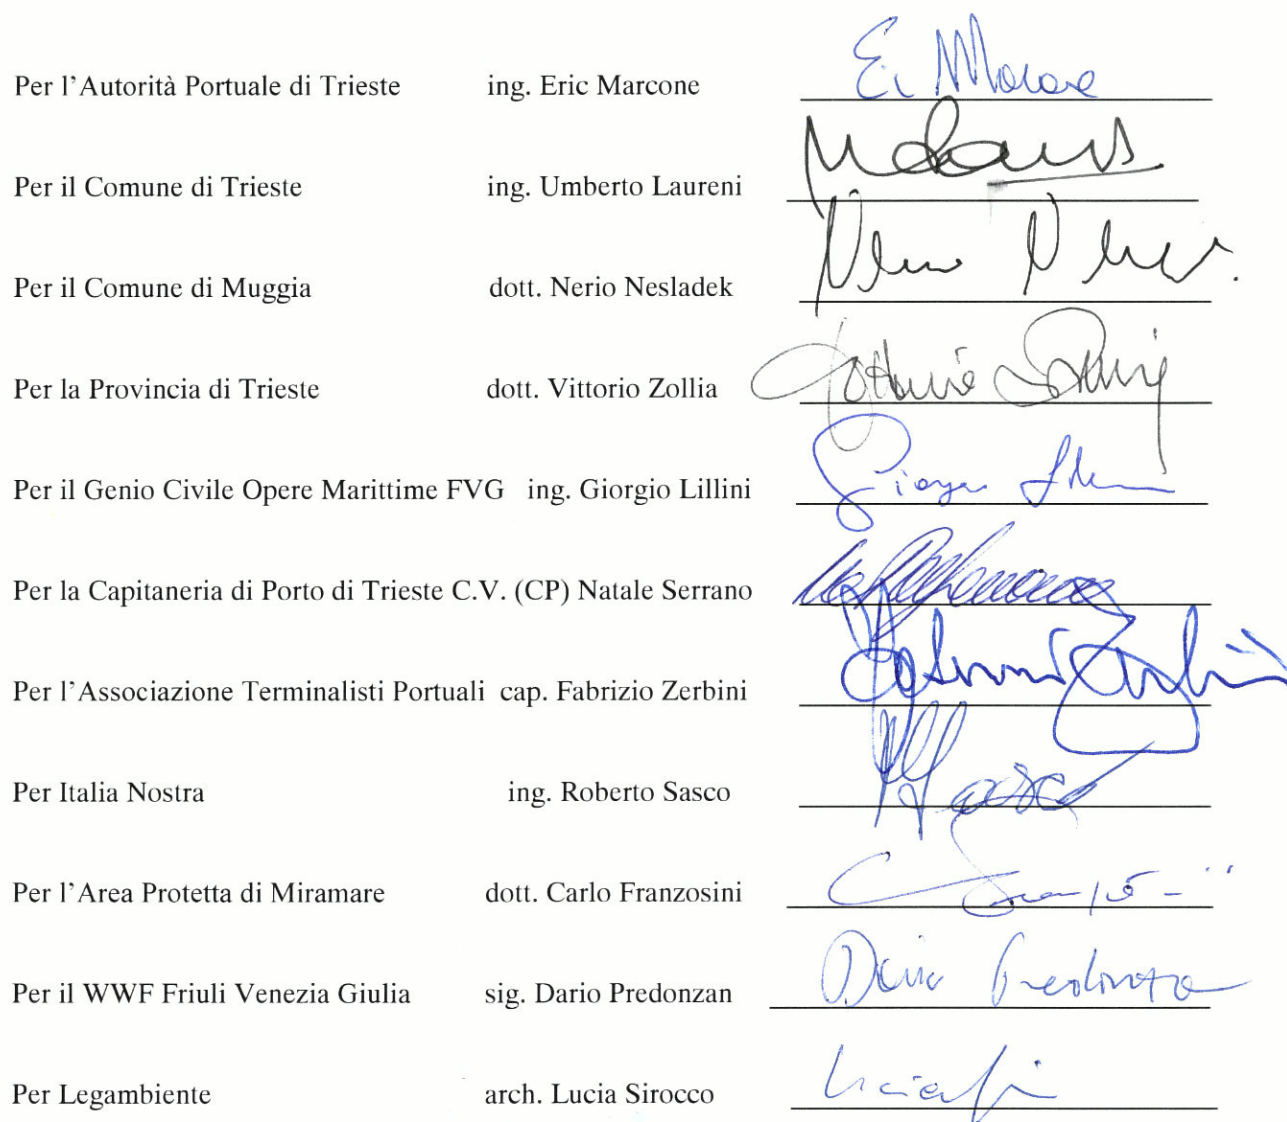 Per l'Autorità Portuale di Trieste ing. Eric Marcone
Per il Comune di Trieste ing. Umberto Laureni
Per il Comune di Muggia dott. Nerio Nesladek
Per la Provincia di Trieste dott. Vittorio Zollia
Per il Genio Civile Opere Marittime FVG ing. Giorgio Lillini
Per la Capitaneria di Porto di Trieste C.V. (CP) Natale Serrano
Per l'Associazione Terminalisti Portuali cap. Fabrizio Zerbini
Per Italia Nostra ing. Roberto Sasco
Per l'Area Protetta di Miramare dott. Carlo Franzosini
Per il WWF Friuli Venezia Giulia sig. Dario Predonzan
Per Legambiente arch. Lucia Sirocco